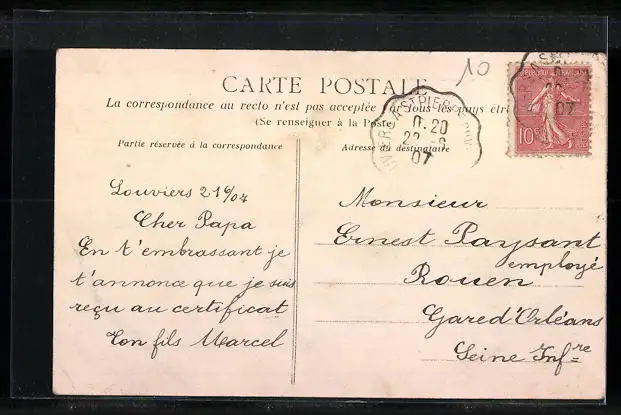 10
CARTE POSTALE
La correspondance au recto n'est pas acceptée par tous les pays
(Se renseigner à la Poste
Partie réservée à la correspondance
Adresse du destinataire
0.20
22 - 6
07
07
10
Louviers 21 6/07
Cher Papa
En t'embrassant je
t'annonce que je suis
reçu au certificat
Ton fils Marcel
Monsieur
Ernest Paysant
employé
Rouen
Gare d'Orléans
Seine Infre